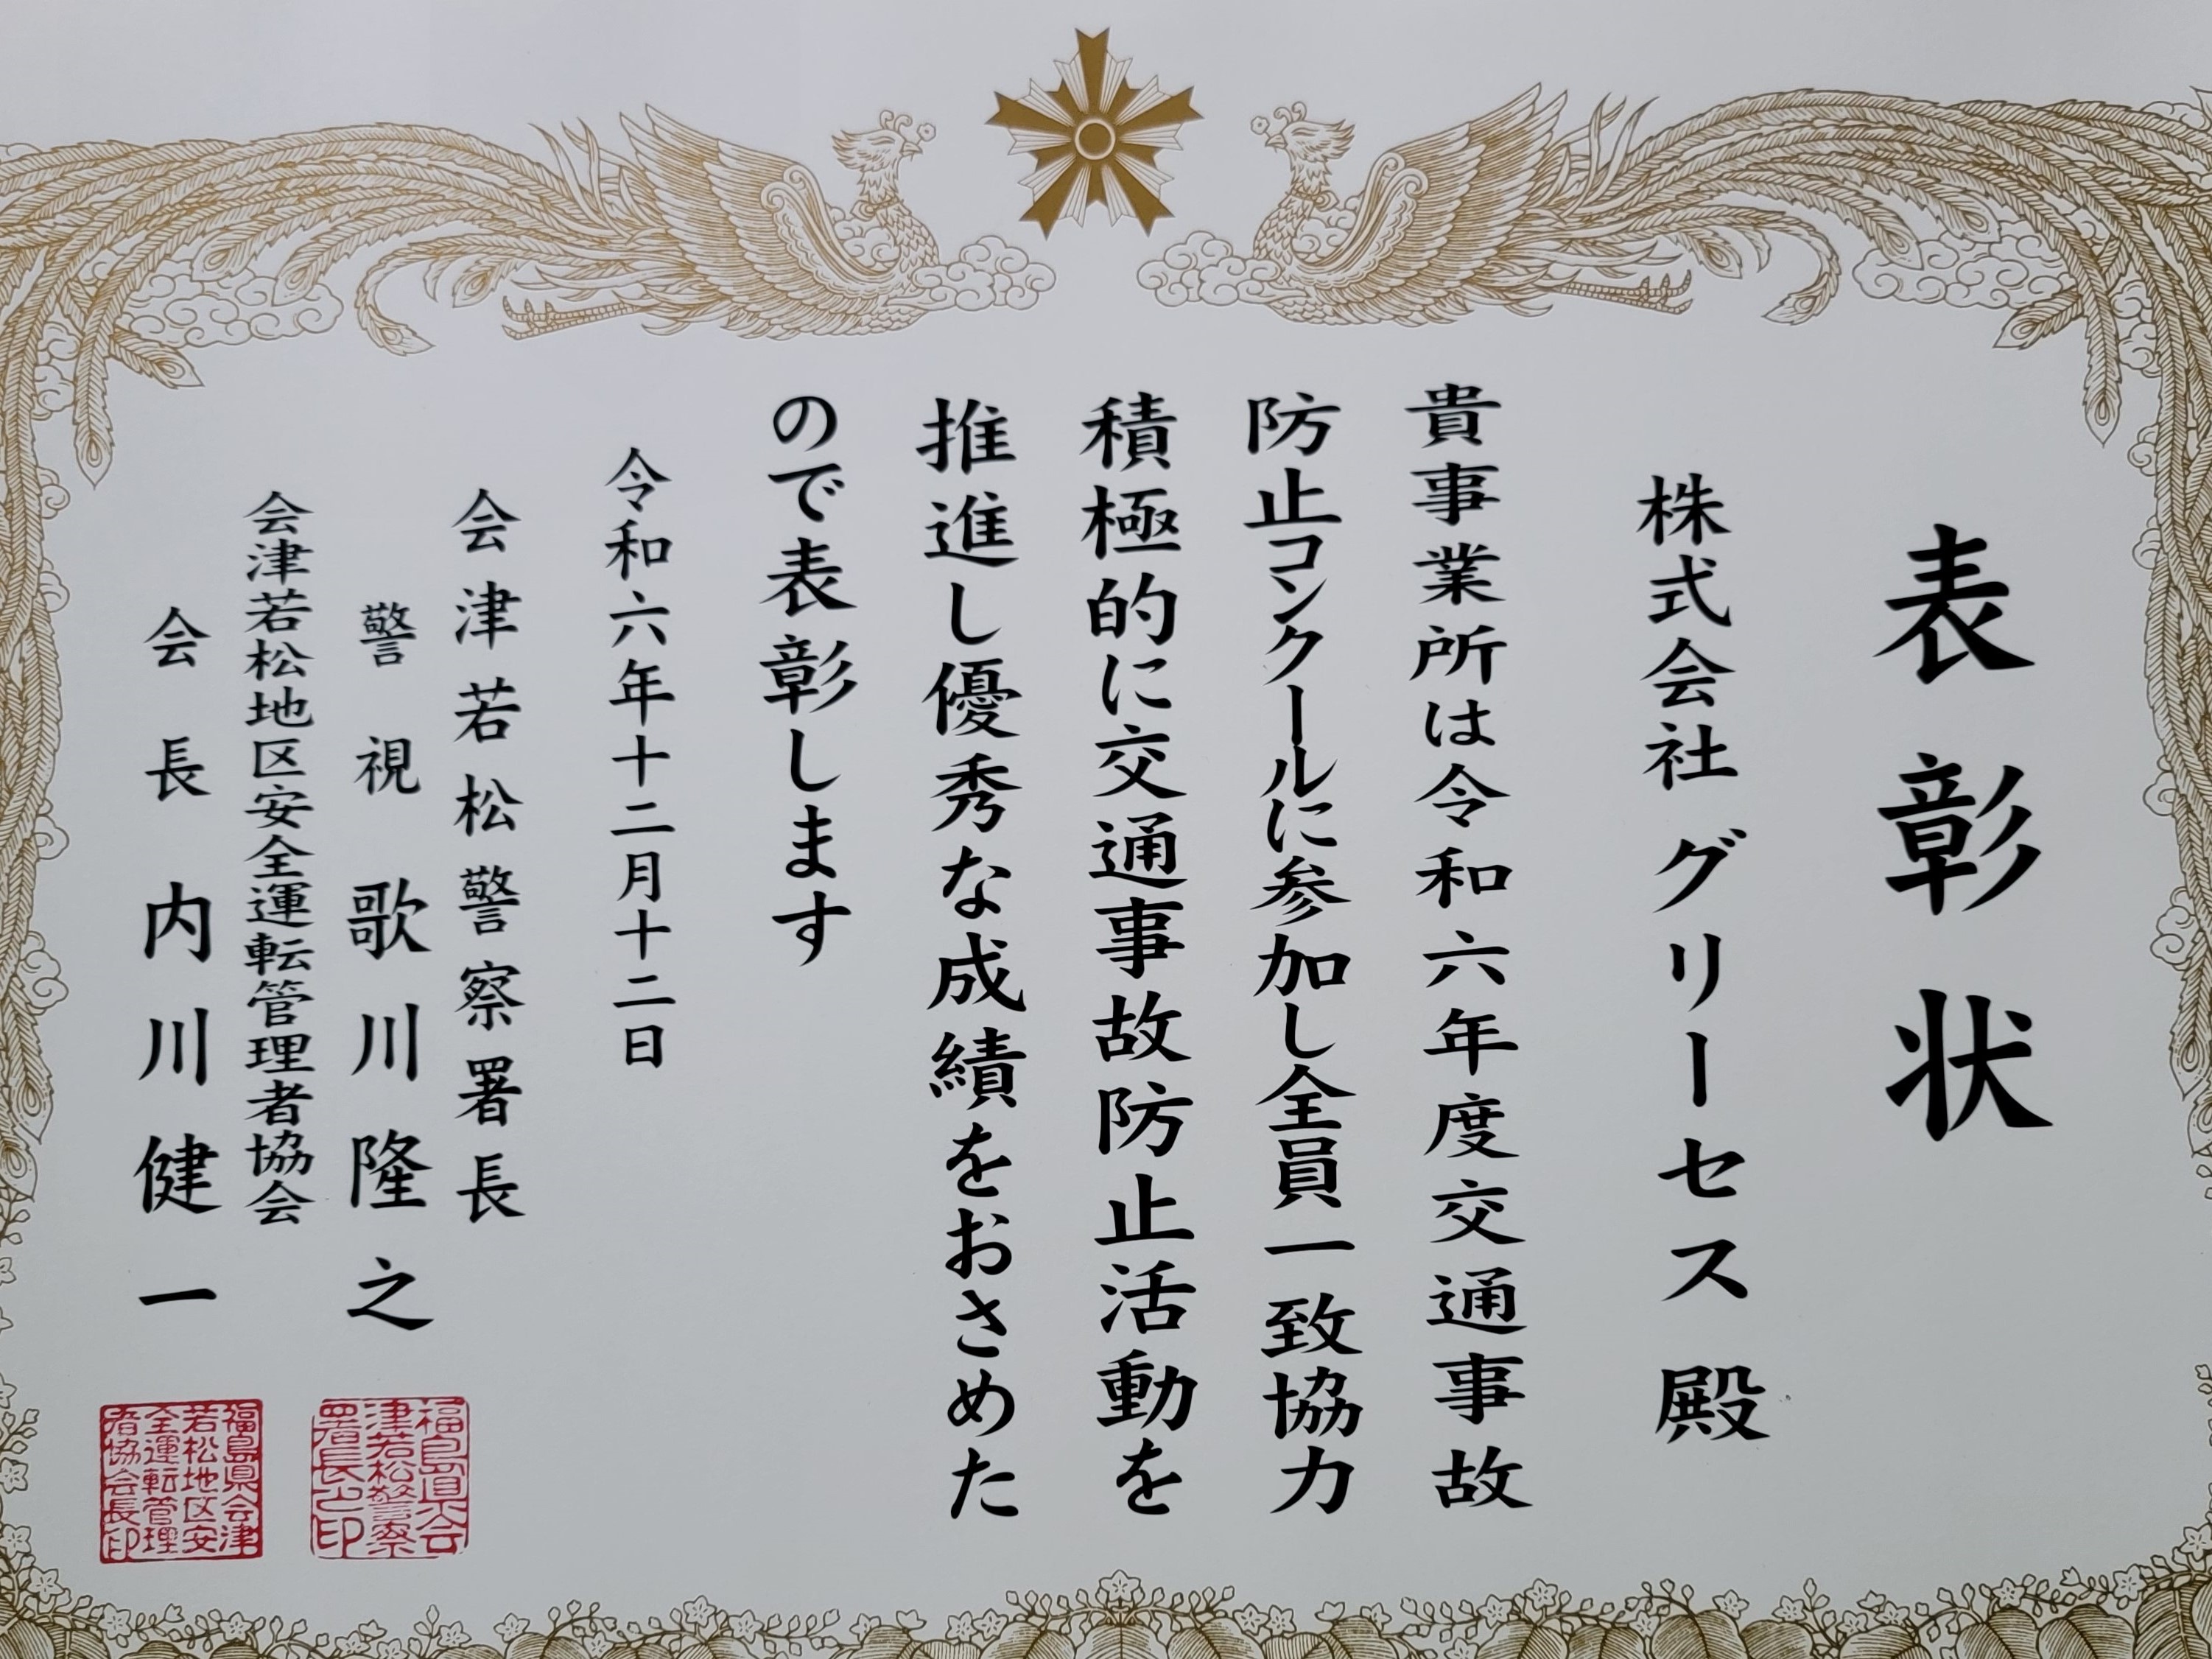 表彰状
株式会社 グリーセス 殿
貴事業所は令和六年度交通事故
防止コンクールに参加し全員一致協力
積極的に交通事故防止活動を
推進し優秀な成績をおさめた
ので表彰します
令和六年十二月十二日
会津若松警察署長
警視 歌川隆之
会津若松地区安全運転管理者協会
会長 内川健一
福島県会
津若松警察
署長之印
福島県会津
若松地区安
全運転管理
者協会長印